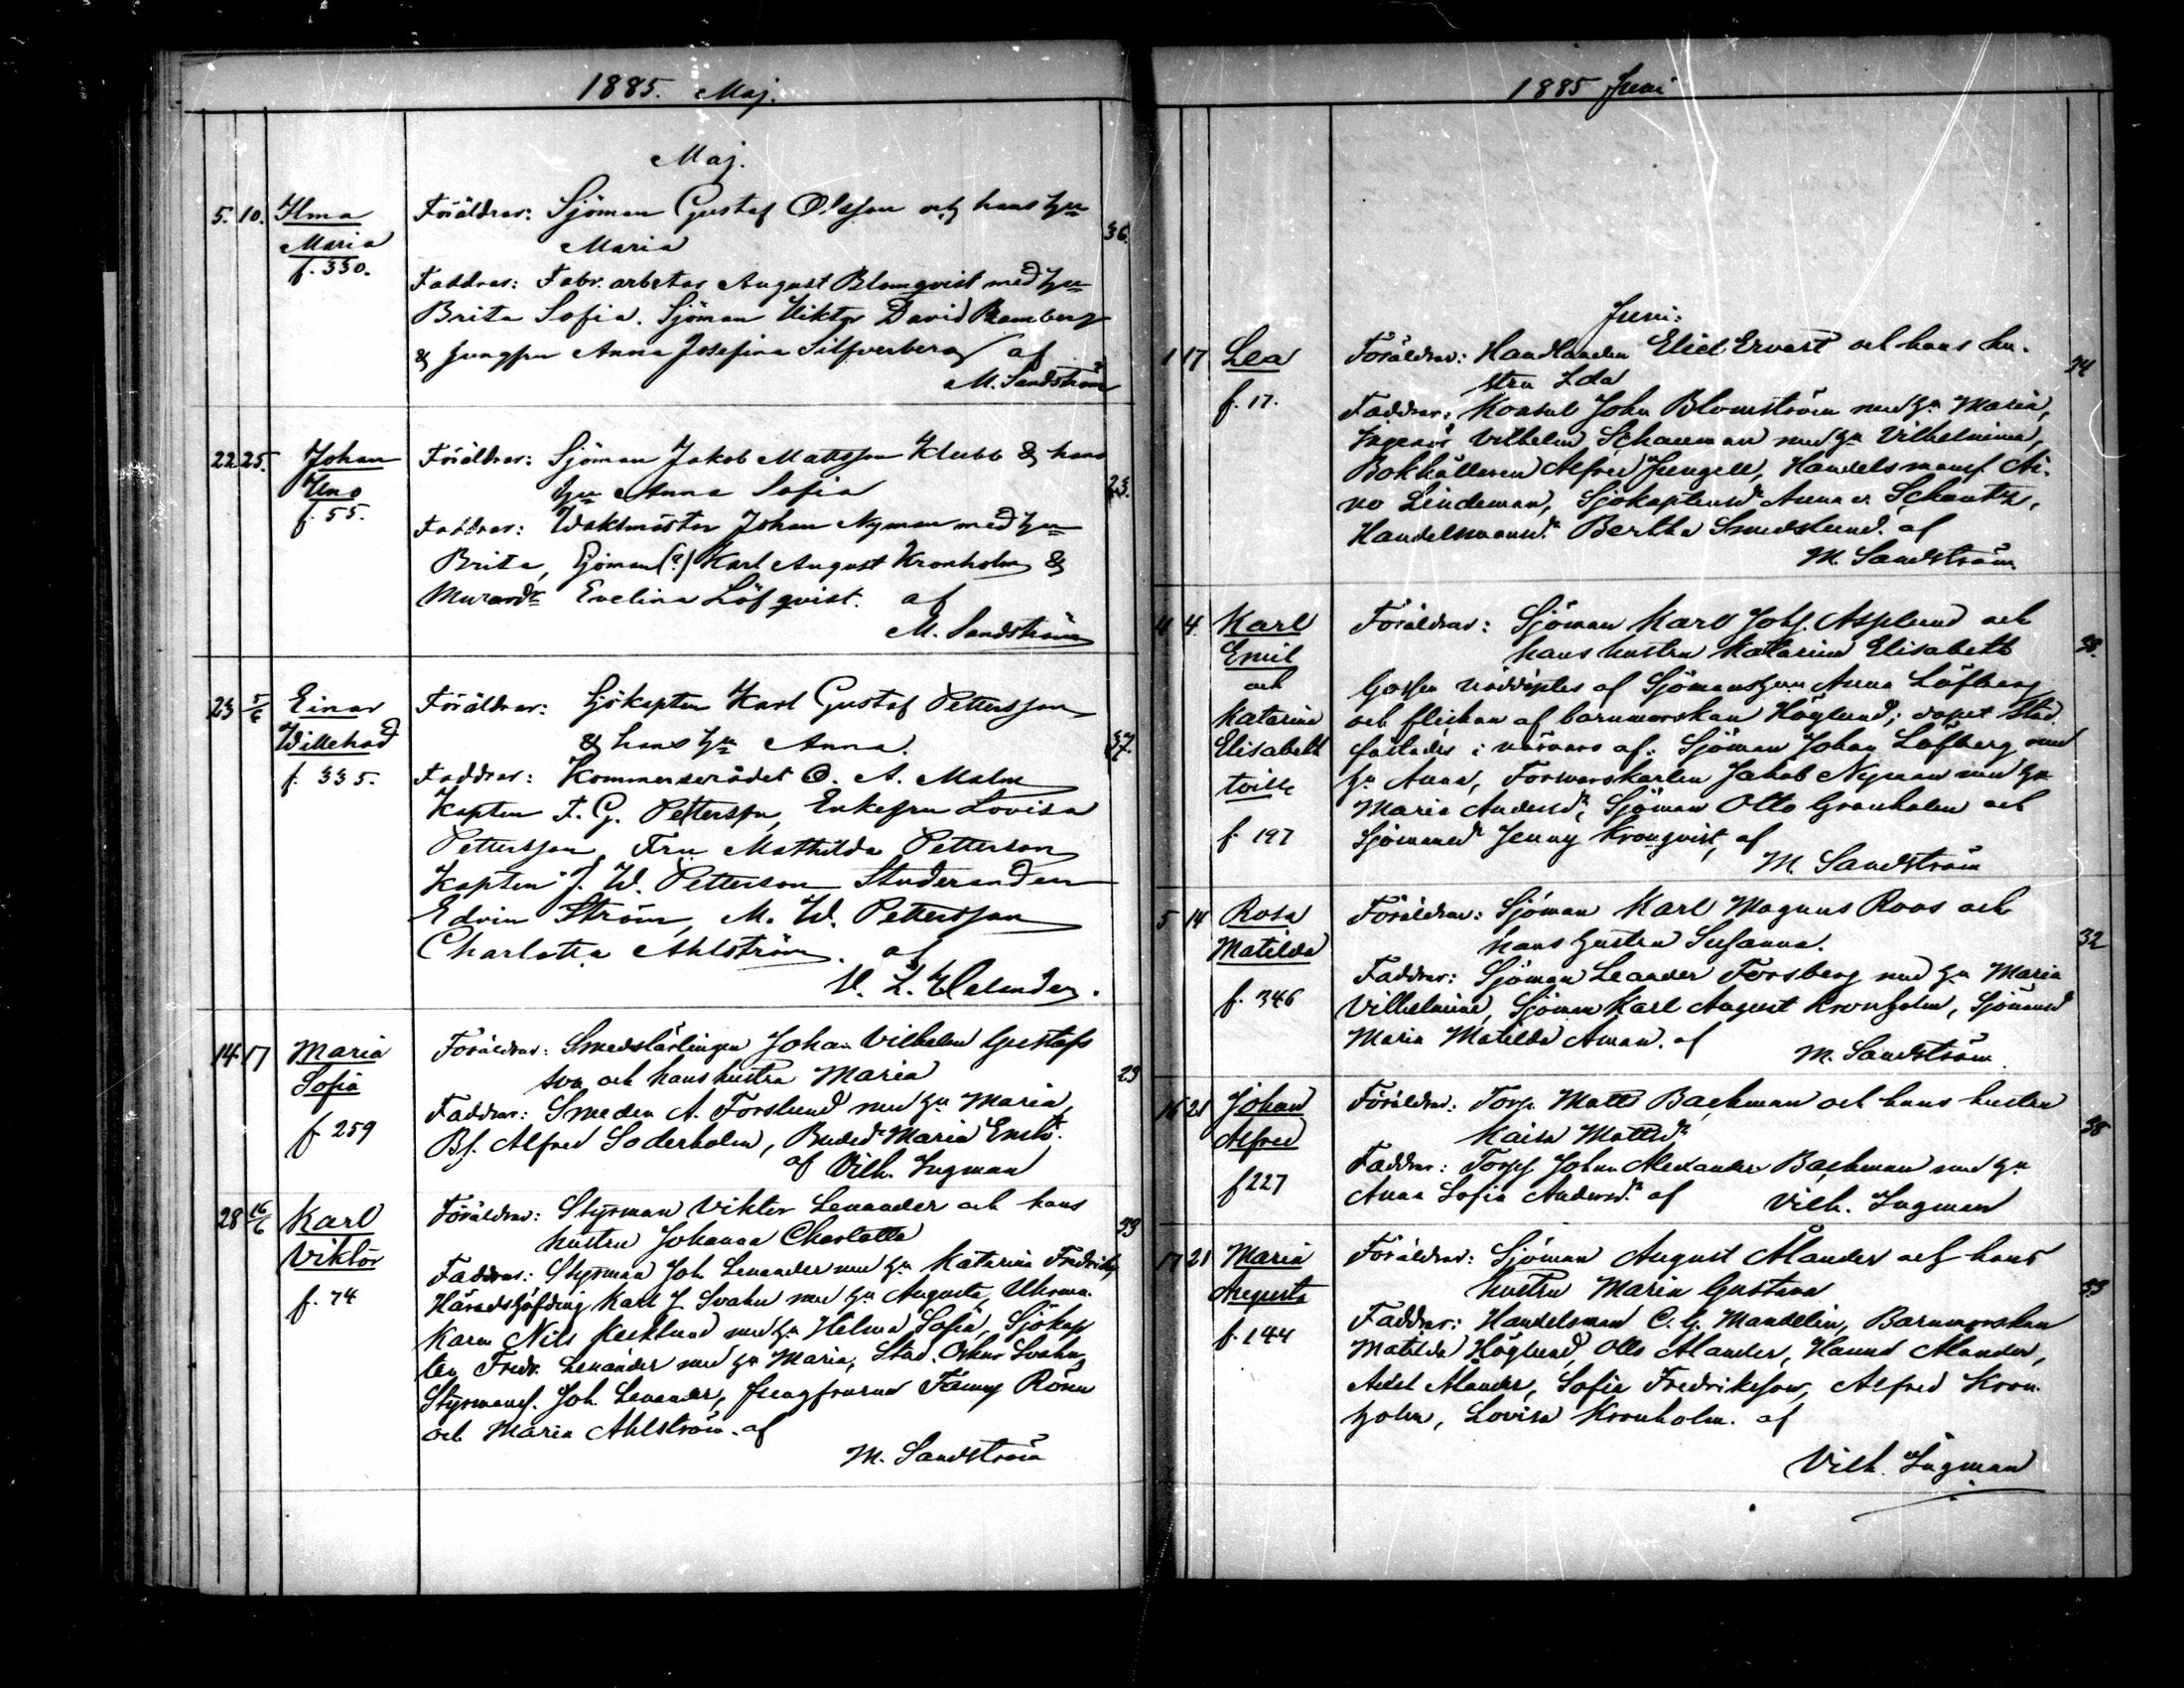 1885. Maj.
Maj.
5. 10. Ilma Föräldrar: Sjöman Gustaf Olsson och hans hu
Maria Maria 36.
f. 330.
Faddrar: Fabr. arbetar August Blomqvist med hu
Brita Sofia. Sjöman Viktor David Ramberg
& Jungfru Anna Josefina Silfverberg af
M. Sandström
22 25. Johan Föräldrar: Sjöman Jakob Mattsson Klubb & hans
Uno hu Anna Sofia 23.
f. 55.
Faddrar: Waktmästar Johan Nyman med hu
Brita, Sjöman (?) Karl August Kronholm &
Murard:r Evelina Löfqvist. af
M. Sandström
23 5/6 Einar Föräldrar: Sjökapten Karl Gustaf Pettersson
Willehad & hans hu Anna. 37.
f. 335. Faddrar: Kommerserådet O. A. Malm
Kapten F. G. Petterson, Enkefru Lovisa
Pettersson, Fru Mathilda Petterson
Kapten J. W. Petterson, Studeranden
Edvin Ström, M. W. Pettersson
Charlotta Ahlström. af
V. L. Helander.
14 17 Maria Föräldrar: Smedslärlingen Johan Vilhelm Gustafs
Sofia son och hans hustru Maria 23
f. 259 Faddrar: Smeden A. Forslund med hu Maria,
Bf. Alfred Söderholm, Maria
af Vilh. Ingman
28 16/6 Karl Föräldrar: Styrman Viktor Lenander och hans
Viktor hustru Johanna Charlotta 33
f. 74 Faddrar: Styrman Joh. Lenander med hu Katarina Fredrika,
Häradshöfding Karl J. Svahn med hu Augusta, Uhrma-
karen Nils med hu Helma Sofia, Sjökap
ten Fredr. Lenander med hu Maria, Stud. Oskar Svahn,
Styrmansf. Joh. Lenander, Jungfrurna Fanny
och Maria Ahlström. af
M. Sandström
1885 Juni
Juni:
1 17 Lea Föräldrar: Handlanden Eliel Ervast och hans hu-
stru Ida 24
f. 17. Faddrar: Konsul John Blomström med hu Maria,
Ingeniör Vilhelm Schauman med hu Vilhelmina,
Bokhållaren Alfred Jungell, Handelsmansf. Ai-
no Lindeman, Sjökaptensd:r Anna v. Schantz,
Handelsmansd:r Bertha Smedslund. af
M. Sandström.
4 4. Karl Föräldrar: Sjöman Karl Johs. Asplund och
Emil hans hustru Katarina Elisabeth 38.
och Gossen nöddöptes af Sjömanshu Anna Löfberg
Katarina och flickan af barnmorskan Höglund; dopet stad-
Elisabeth fästades i närvaro af: Sjöman Johan Löfberg med
tvill. hu Anna, Formanskarlen Jakob Nyman med hu
Maria Andersd:r, Sjöman Otto Granholm och
f. 197 Sjömansd:r Jenny Kronqvist, af
M. Sandström
5 14 Rosa Föräldrar: Sjöman Karl Magnus Roos och
Matilda hans hustru Susanna. 32
f. 346 Faddrar: Sjöman Leander Forsberg med hu Maria
Vilhelmina, Sjöman Karl August Kronholm, Sjömansd
Maria Matilda Åman. af
M. Sandström
16 21 Johan Föräldrar: Torp. Matts Backman och hans hustru
Alfred Kaisa Mattsd:r 38
f 227 Faddrar: Torpf. Johan Alexander Backman med hu
Anna Sofia Andersd:r af Vilh. Ingman
17 21 Maria Föräldrar: Sjöman August Ålander och hans
Augusta hustru Maria Gustava 33
f. 144 Faddrar: Handelsman C. G. Mandelin, Barnmorskan
Matilda Höglund, Otto Ålander, Hanna Ålander,
Axel Ålander, Sofia Fredriksson, Alfred Kron-
holm, Lovisa Kronholm. af
Vilh. Ingman